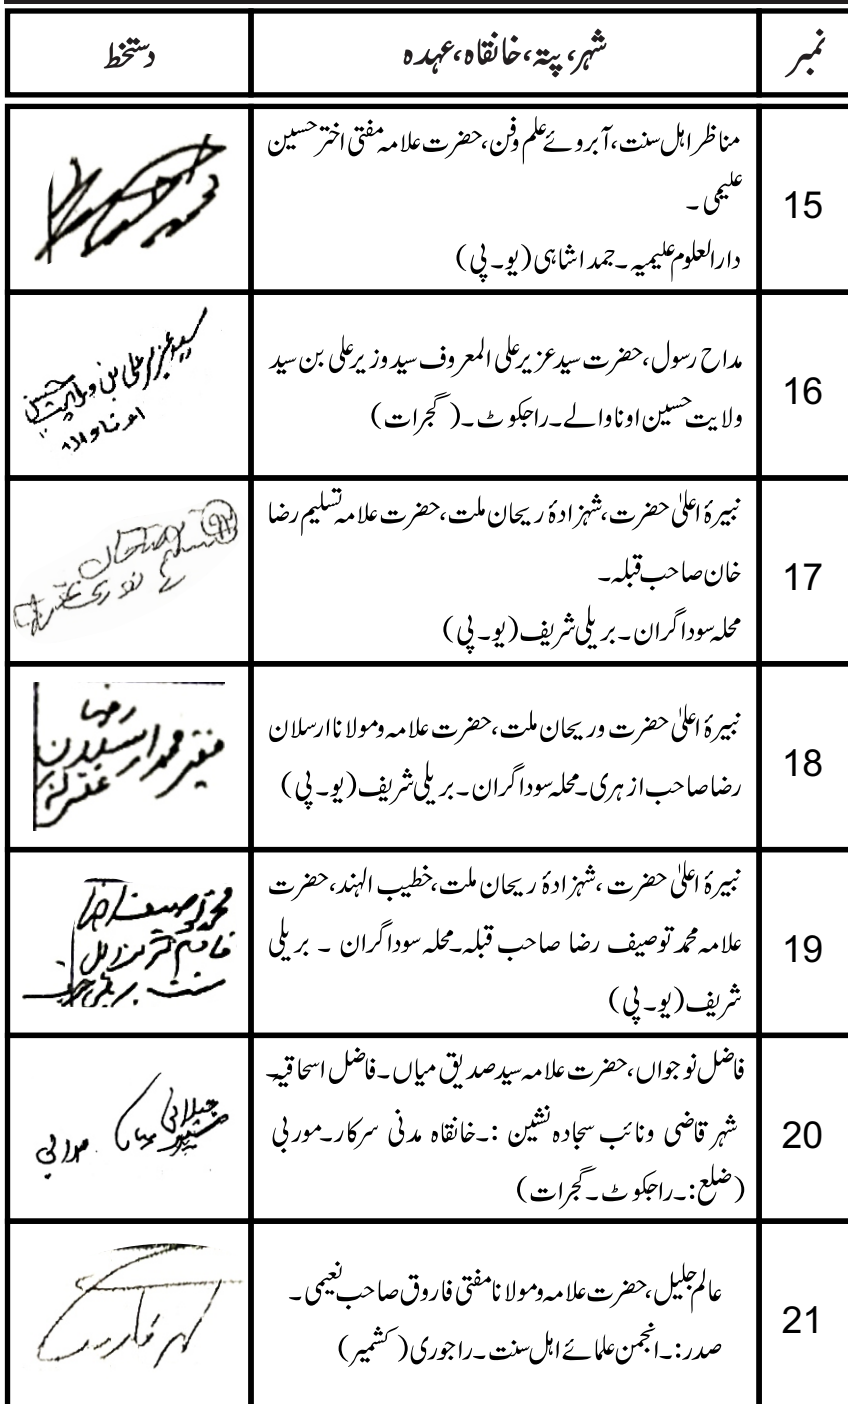 نمبر شہر، پتہ، خانقاہ، عہدہ دستخط
15
مناظر اہل سنت، آبروئے علم وفن، حضرت علامہ مفتی اختر حسین
علیمی ۔
دارالعلوم علیمیہ ۔ جمدا شاہی (یو۔ پی)
16
مداح رسول، حضرت سید عزیر علی المعروف سید وزیر علی بن سید
ولایت حسین اونا والے۔ راجکوٹ ۔ (گجرات)
17
نبیرۂ اعلیٰ حضرت، شہزادۂ ریحان ملت، حضرت علامہ تسلیم رضا
خان صاحب قبلہ۔
محلہ سوداگران ۔ بریلی شریف (یو۔ پی)
18
نبیرۂ اعلیٰ حضرت وریحان ملت، حضرت علامہ ومولانا ارسلان
رضا صاحب ازہری۔ محلہ سوداگران ۔ بریلی شریف (یو۔ پی)
رضا
فقیر محمد ارسلان
غفرلہ
19
نبیرۂ اعلیٰ حضرت ، شہزادۂ ریحان ملت، خطیب الہند، حضرت
علامہ محمد توصیف رضا صاحب قبلہ۔ محلہ سوداگران ۔ بریلی
شریف (یو۔ پی)
محمد توصیف رضا
20
فاضل نوجواں، حضرت علامہ سید صدیق میاں ۔ فاضل اسحاقیہ۔
شہر قاضی ونائب سجادہ نشین :۔ خانقاہ مدنی سرکار۔ موربی
(ضلع:۔ راجکوٹ ۔ گجرات)
21
عالم جلیل، حضرت علامہ ومولانا مفتی فاروق صاحب نعیمی ۔
صدر:۔ انجمن علمائے اہل سنت ۔ راجوری (کشمیر)